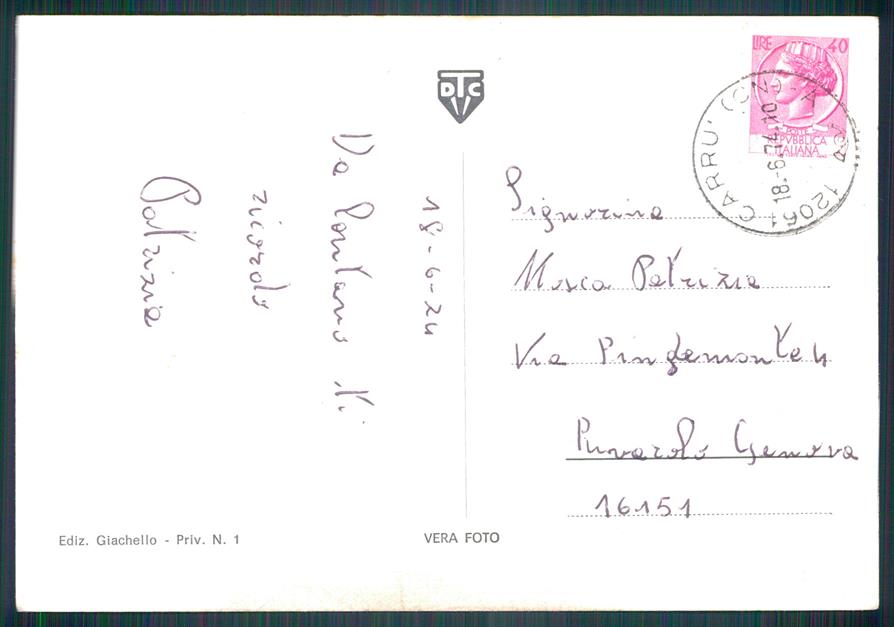 18-6-74
Da lontano ti
ricordo
Patrizia
DTC
LIRE 40
POSTE
REPUBBLICA
ITALIANA
CARRU' (CN) - A
18.-6.74.10
12061
Signorina
Mosca Patrizia
Via Pindemonte 4
Rivarolo Genova
16151
Ediz. Giachello - Priv. N. 1
VERA FOTO